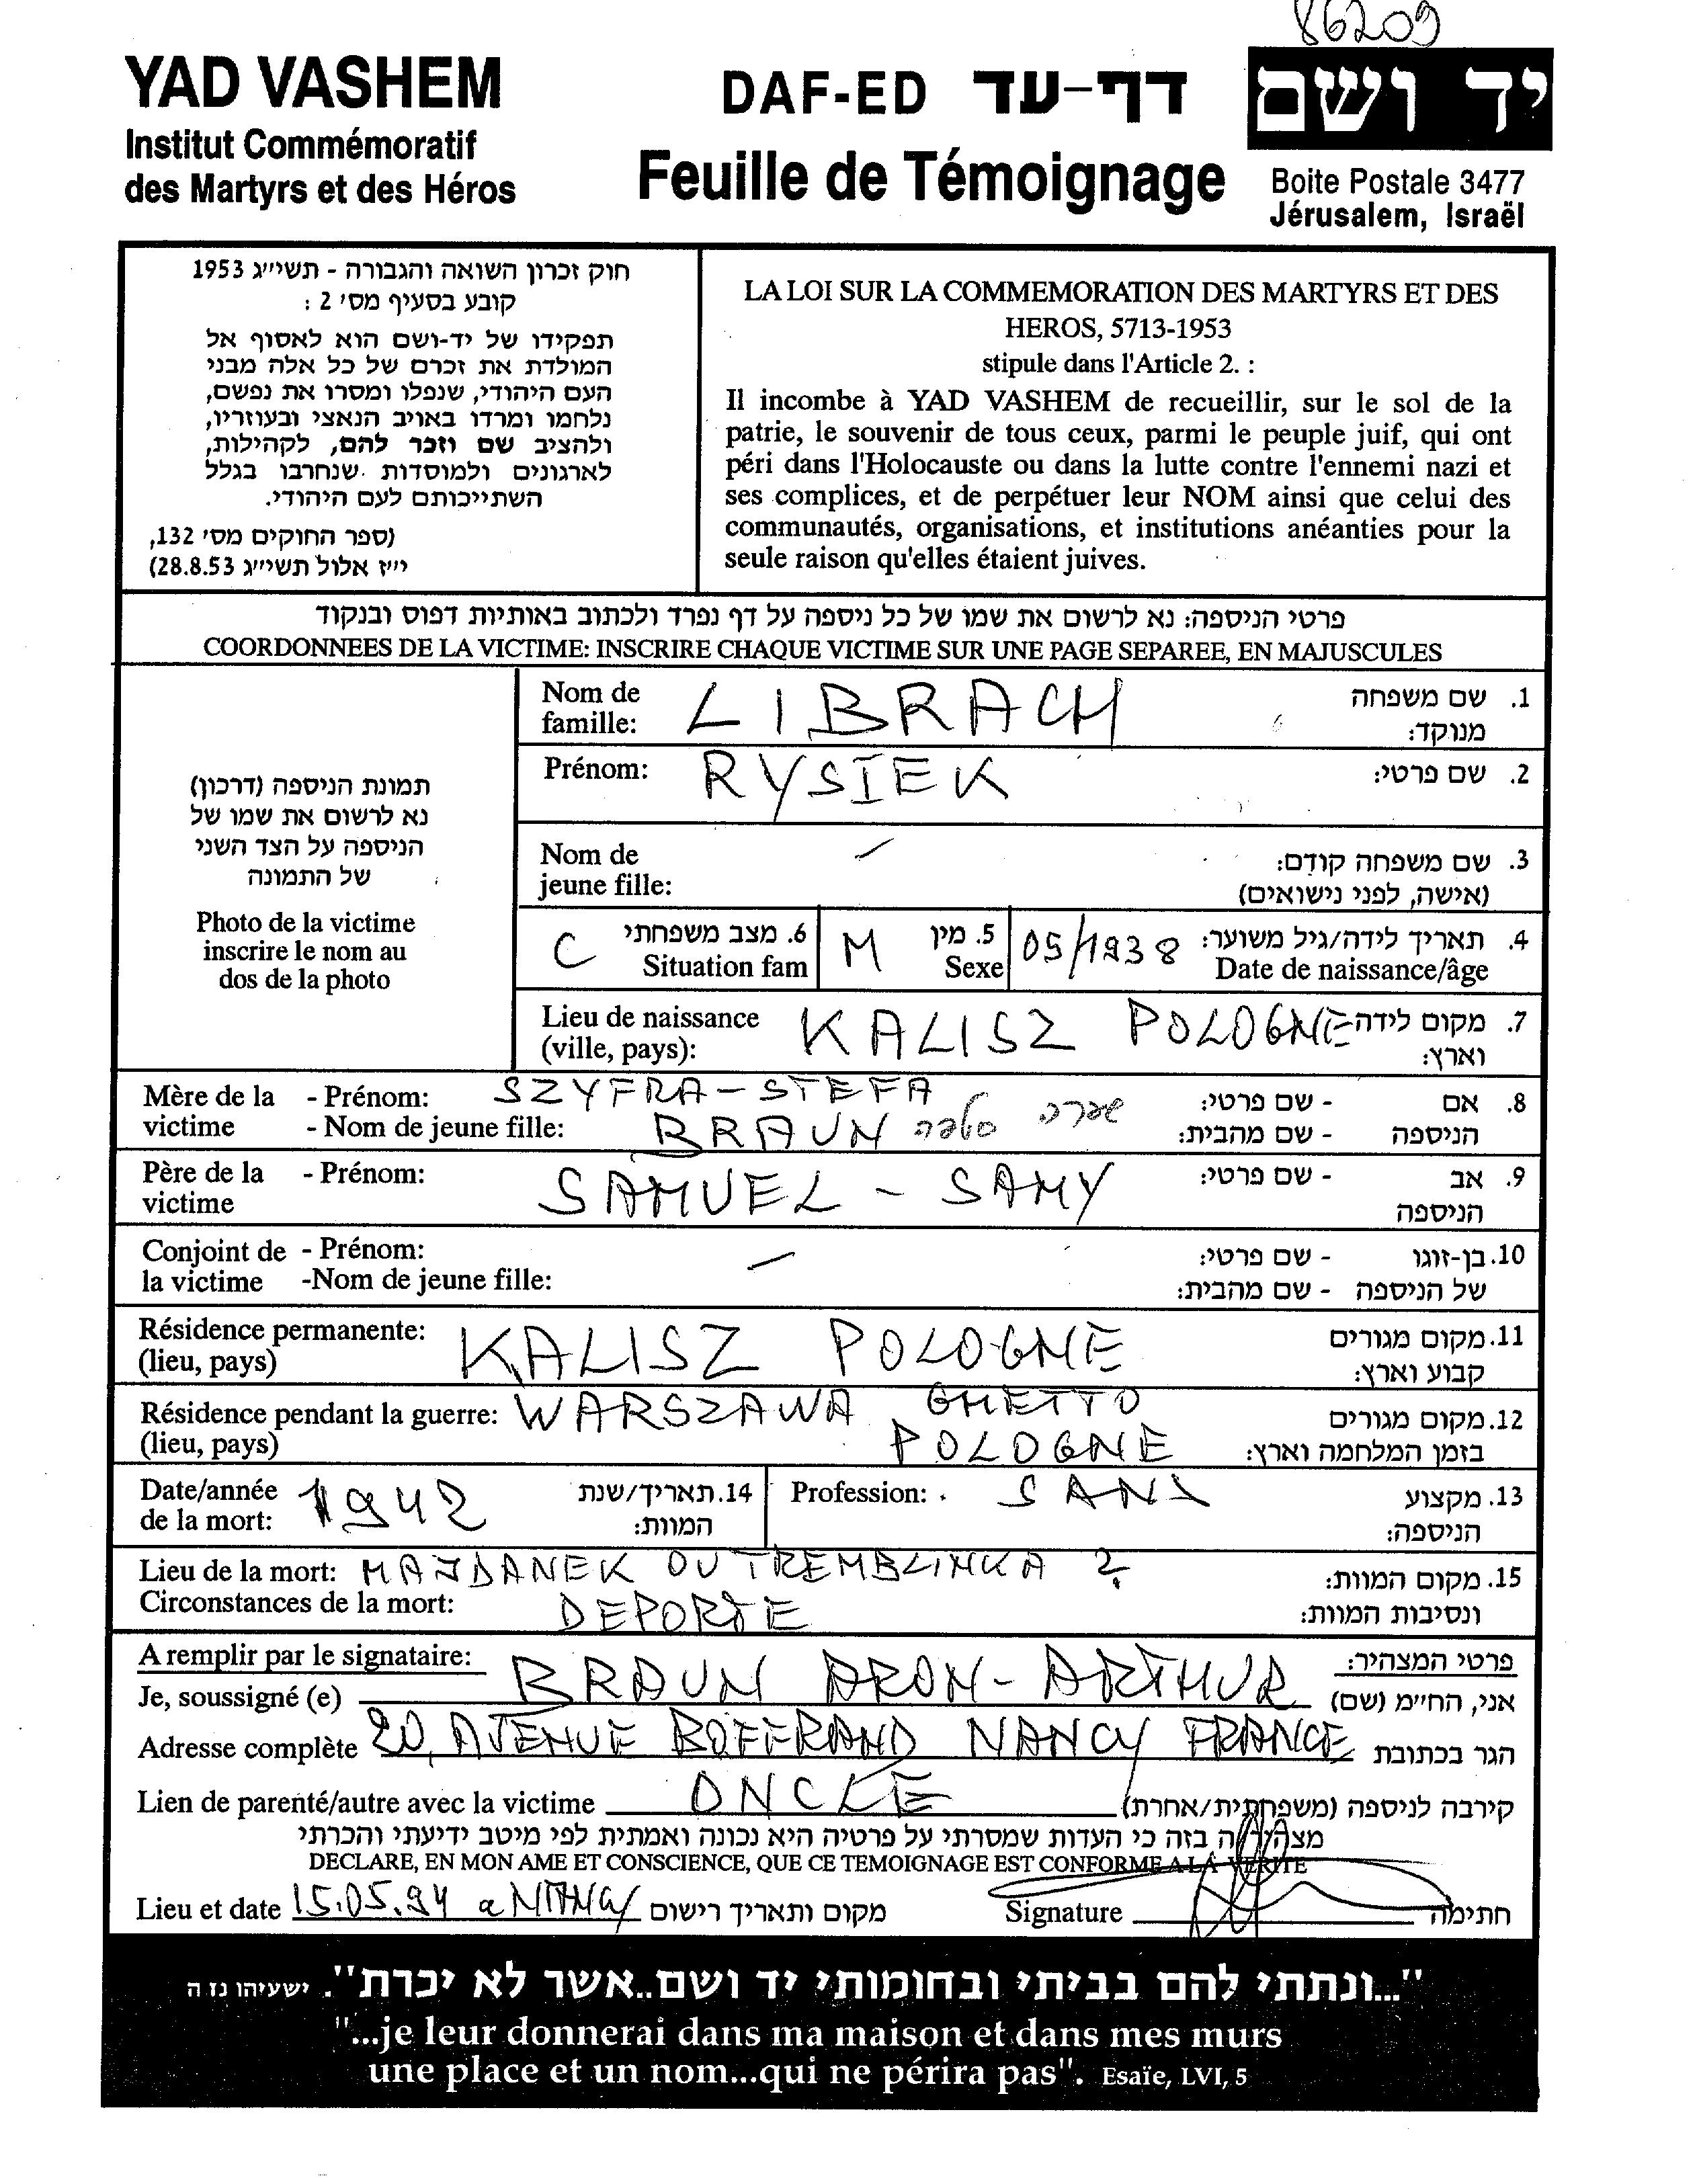 86209
YAD VASHEM
Institut Commémoratif
des Martyrs et des Héros
DAF-ED דף-עד
Feuille de Témoignage
יד ושם
Boite Postale 3477
Jérusalem, Israël
חוק זכרון השואה והגבורה - תשי״ג 1953
קובע בסעיף מס׳ 2 :
תפקידו של יד-ושם הוא לאסוף אל
המולדת את זכרם של כל אלה מבני
העם היהודי, שנפלו ומסרו את נפשם,
נלחמו ומרדו באויב הנאצי ובעוזריו,
ולהציב שם וזכר להם, לקהילות,
לארגונים ולמוסדות שנחרבו בגלל
השתייכותם לעם היהודי.
(ספר החוקים מס׳ 132,
י״ז אלול תשי״ג 28.8.53)
LA LOI SUR LA COMMEMORATION DES MARTYRS ET DES
HEROS, 5713-1953
stipule dans l'Article 2. :
Il incombe à YAD VASHEM de recueillir, sur le sol de la
patrie, le souvenir de tous ceux, parmi le peuple juif, qui ont
péri dans l'Holocauste ou dans la lutte contre l'ennemi nazi et
ses complices, et de perpétuer leur NOM ainsi que celui des
communautés, organisations, et institutions anéanties pour la
seule raison qu'elles étaient juives.
פרטי הניספה: נא לרשום את שמו של כל ניספה על דף נפרד ולכתוב באותיות דפוס ובנקוד
COORDONNEES DE LA VICTIME: INSCRIRE CHAQUE VICTIME SUR UNE PAGE SEPAREE, EN MAJUSCULES
תמונת הניספה (דרכון)
נא לרשום את שמו של
הניספה על הצד השני
של התמונה
Photo de la victime
inscrire le nom au
dos de la photo
Nom de famille: LIBRACH 1. שם משפחה מנוקד:
Prénom: RYSIEK 2. שם פרטי:
Nom de jeune fille: / 3. שם משפחה קודם: (אישה, לפני נישואים)
C 6. מצב משפחתי Situation fam
M 5. מין Sexe
05/1938 4. תאריך לידה/גיל משוער: Date de naissance/âge
Lieu de naissance (ville, pays): KALISZ POLOGNE 7. מקום לידה וארץ:
Mère de la victime - Prénom: SZYFRA-STEFA 8. אם הניספה - שם פרטי:
- Nom de jeune fille: BRAUN - שם מהבית:
Père de la victime - Prénom: SAMUEL - SAMY 9. אב הניספה - שם פרטי:
Conjoint de la victime - Prénom: / 10. בן-זוגו של הניספה - שם פרטי:
-Nom de jeune fille: - שם מהבית:
Résidence permanente: (lieu, pays) KALISZ POLOGNE 11. מקום מגורים קבוע וארץ:
Résidence pendant la guerre: (lieu, pays) WARSZAWA GHETTO POLOGNE 12. מקום מגורים בזמן המלחמה וארץ:
Date/année de la mort: 1942 14. תאריך/שנת המוות:
Profession: SANS 13. מקצוע הניספה:
Lieu de la mort: MAJDANEK OU TREMBLINKA ? 15. מקום המוות:
Circonstances de la mort: DEPORTE ונסיבות המוות:
A remplir par le signataire: פרטי המצהיר:
Je, soussigné (e) BRAUN ARON-ARTHUR אני, החי״מ (שם)
Adresse complète 20, AVENUE BOFFRAND NANCY FRANCE הגר בכתובת
Lien de parenté/autre avec la victime ONCLE קירבה לניספה (משפחתית/אחרת)
מצהיר/ה בזה כי העדות שמסרתי על פרטיה היא נכונה ואמתית לפי מיטב ידיעתי והכרתי
DECLARE, EN MON AME ET CONSCIENCE, QUE CE TEMOIGNAGE EST CONFORME A LA VERITE
Lieu et date 15.05.94 a NANCY מקום ותאריך רישום Signature חתימה
"...ונתתי להם בביתי ובחומותי יד ושם..אשר לא יכרת". ישעיהו נז ה
"...je leur donnerai dans ma maison et dans mes murs
une place et un nom...qui ne périra pas". Esaïe, LVI, 5